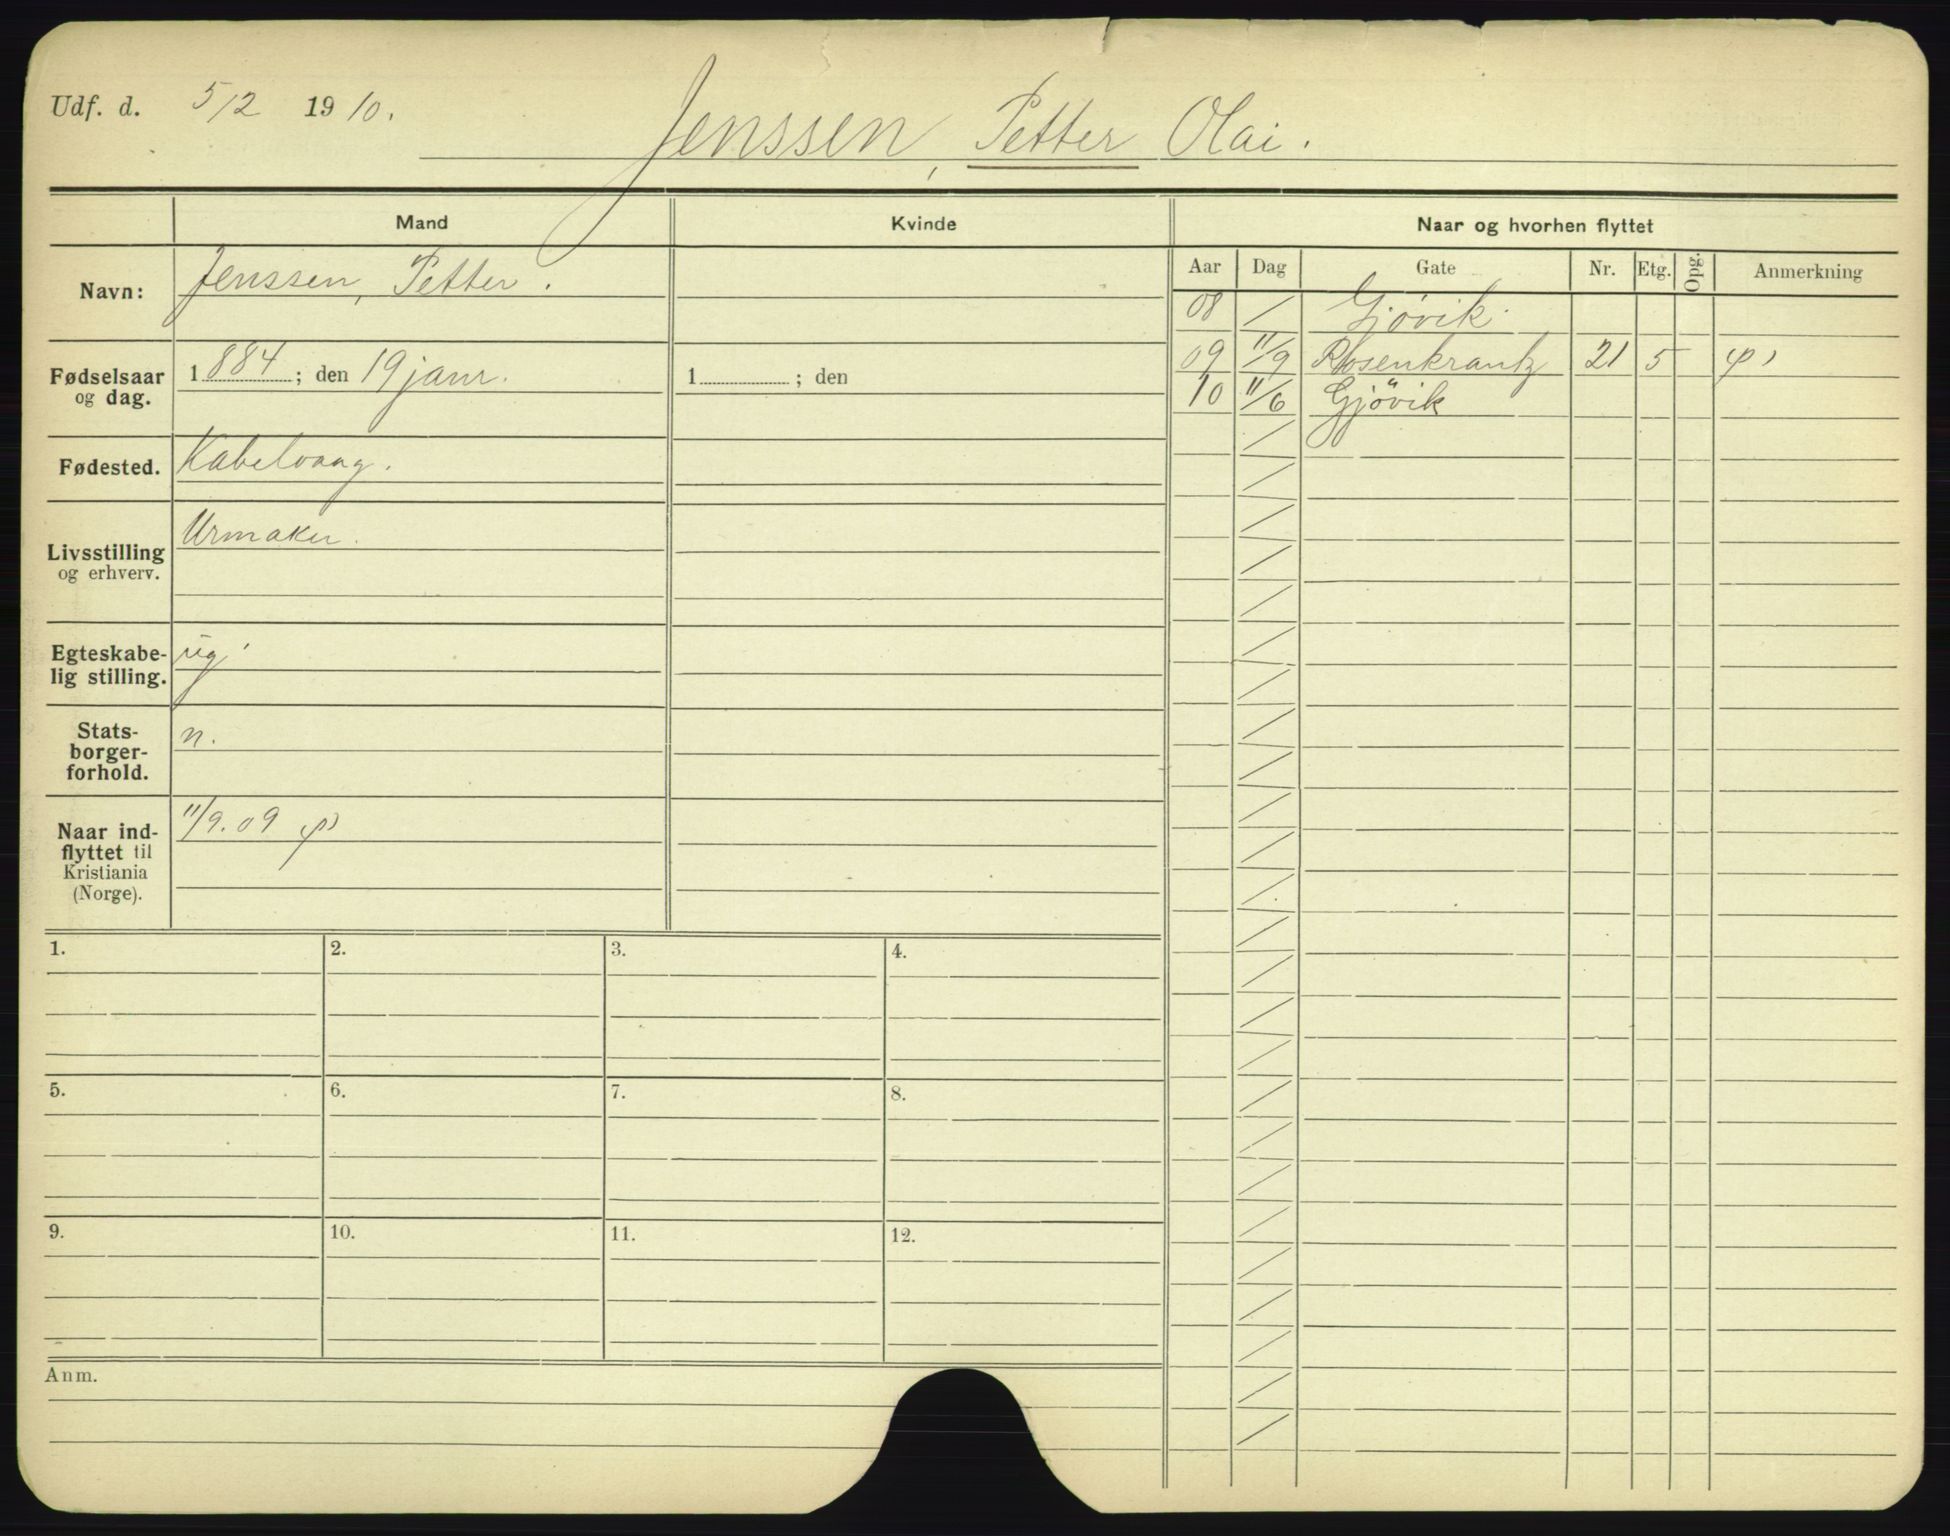 Udf. d. 5/2 1910.
Jenssen, Petter Olai.
Mand
Kvinde
Naar og hvorhen flyttet
Aar Dag Gate Nr. Etg. Opg. Anmerkning
Navn: Jenssen, Petter.
08 / Gjøvik.
09 11/9 Rosenkrantz 21 5
10 11/6 Gjøvik
Fødselsaar og dag. 1884; den 19 janr.
1 ; den
Fødested. Kabelvaag.
Livsstilling og erhverv. Urmaker.
Egteskabe-
lig stilling. ug.
Stats-
borger-
forhold. n.
Naar ind-
flyttet til
Kristiania
(Norge). 11/9.09
1. 2. 3. 4.
5. 6. 7. 8.
9. 10. 11. 12.
Anm.